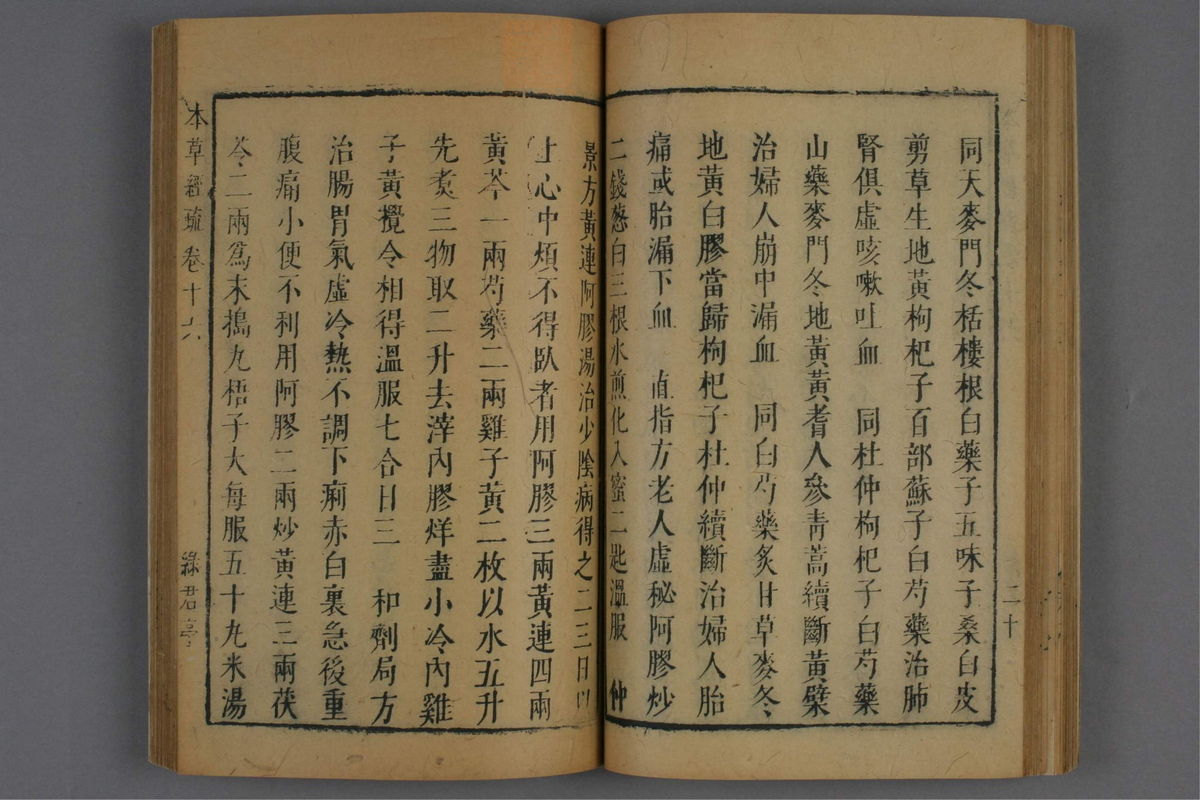 同天麥門冬栝樓根白藥子五味子桑白皮
剪草生地黃枸杞子百部蘇子白芍藥治肺
腎俱虛咳嗽吐血　同杜仲枸杞子白芍藥
山藥麥門冬地黃黃耆人參青蒿續斷黃檗
治婦人崩中漏血　同白芍藥炙甘草麥冬
地黃白膠當歸枸杞子杜仲續斷治婦人胎
痛或胎漏下血　直指方老人虛秘阿膠炒
二錢葱白三根水煎化入蜜二匙溫服　仲
二十
景方黃連阿膠湯治少陰病得之二三日以
上心中煩不得臥者用阿膠三兩黃連四兩
黃芩一兩芍藥二兩雞子黃二枚以水五升
先煑三物取二升去滓內膠烊盡小冷內雞
子黃攪令相得溫服七合日三　和劑局方
治腸胃氣虛冷熱不調下痢赤白裏急後重
腹痛小便不利用阿膠二兩炒黃連三兩茯
苓二兩爲末搗丸梧子大每服五十丸米湯
本草經疏　卷十六　綠君亭